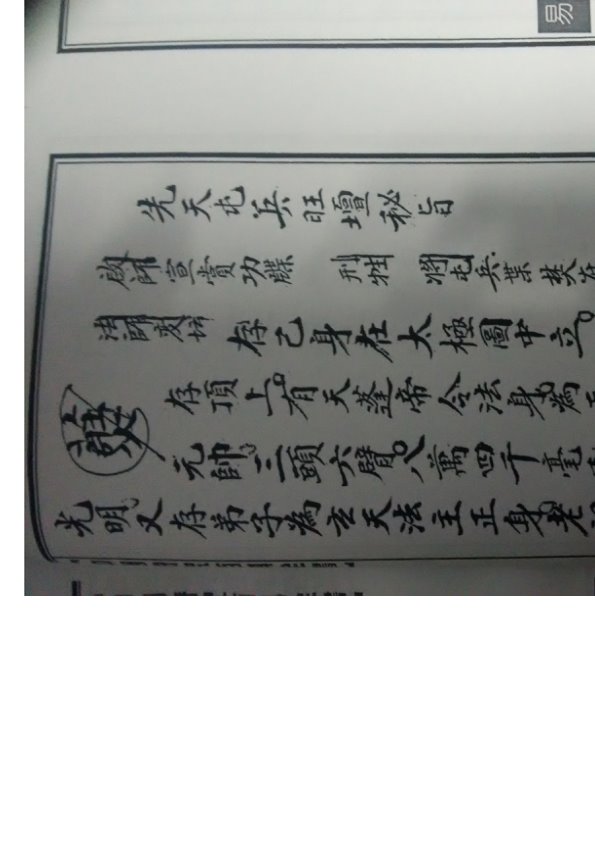 易
先天屯兵旺壇秘旨
啟師宣賞功牒 刑牲 將屯兵葉焚
法師変 存己身在太極圖中立
存頂上有天蓬帝令法身為
元帥三頭六臂八萬四千毫
光明又存弟子為玄天法主正身